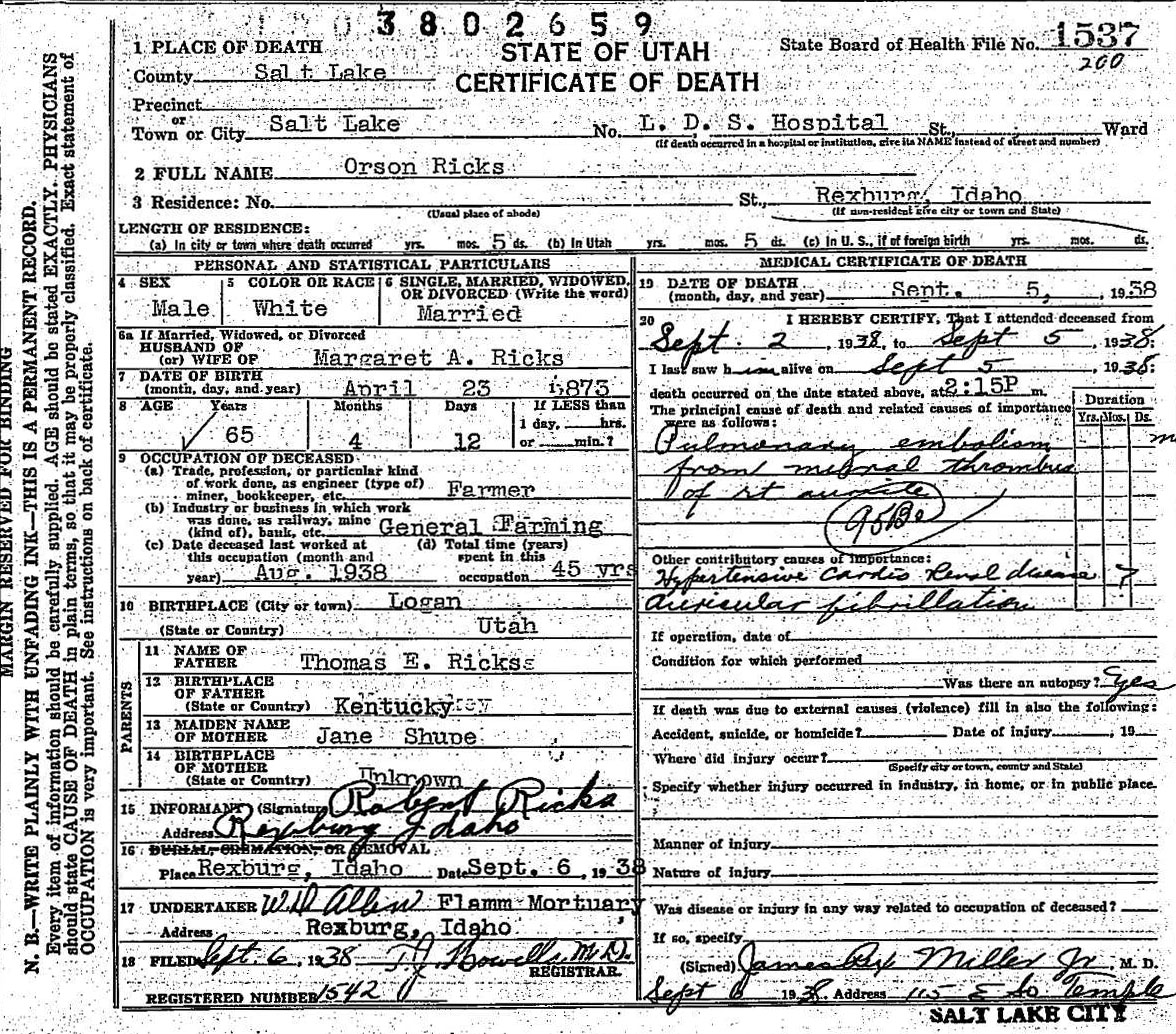 3802659
STATE OF UTAH
CERTIFICATE OF DEATH
State Board of Health File No. 1537
200
1 PLACE OF DEATH
County Salt Lake
Precinct
or
Town or City Salt Lake No. L. D. S. Hospital St., Ward
(If death occurred in a hospital or institution, give its NAME instead of street and number)
2 FULL NAME Orson Ricks
3 Residence: No. St., Rexburg, Idaho
(Usual place of abode) (If non-resident give city or town and State)
LENGTH OF RESIDENCE:
(a) In city or town where death occurred yrs. mos. 5 ds. (b) In Utah yrs. mos. 5 ds. (c) In U. S., if of foreign birth yrs. mos. ds.
PERSONAL AND STATISTICAL PARTICULARS
4 SEX 5 COLOR OR RACE 6 SINGLE, MARRIED, WIDOWED, OR DIVORCED (Write the word)
Male White Married
6a If Married, Widowed, or Divorced
HUSBAND OF
(or) WIFE OF Margaret A. Ricks
7 DATE OF BIRTH
(month, day, and year) April 23 1873
8 AGE Years Months Days If LESS than
1 day, hrs.
65 4 12 or min.?
9 OCCUPATION OF DECEASED
(a) Trade, profession, or particular kind
of work done, as engineer (type of)
miner, bookkeeper, etc. Farmer
(b) Industry or business in which work
was done, as railway, mine
(kind of), bank, etc. General Farming
(c) Date deceased last worked at
this occupation (month and
year) Aug. 1938
(d) Total time (years)
spent in this
occupation 45 yrs
10 BIRTHPLACE (City or town) Logan
(State or Country) Utah
PARENTS
11 NAME OF
FATHER Thomas E. Ricks
12 BIRTHPLACE
OF FATHER
(State or Country) Kentucky
13 MAIDEN NAME
OF MOTHER Jane Shupe
14 BIRTHPLACE
OF MOTHER
(State or Country) Unknown
15 INFORMANT (Signature) Robert Ricks
Address Rexburg Idaho
16 BURIAL, CREMATION, OR REMOVAL
Place Rexburg, Idaho Date Sept. 6, 1938
17 UNDERTAKER W D Allen Flamm Mortuary
Address Rexburg, Idaho
18 FILED Sept. 6, 1938 T. J. Howells, M.D.
REGISTRAR.
REGISTERED NUMBER 1542
MEDICAL CERTIFICATE OF DEATH
19 DATE OF DEATH
(month, day, and year) Sept. 5, , 1938
20 I HEREBY CERTIFY, That I attended deceased from
Sept. 2, 1938, to Sept 5, 1938;
I last saw him alive on Sept 5, 1938;
death occurred on the date stated above, at 2:15P m.
The principal cause of death and related causes of importance
were as follows:
Duration
Yrs. Mos. Ds.
Pulmonary embolism m
from thrombus
of rt
Other contributory causes of importance:
Hypertensive Cardio Renal disease ?
auricular fibrillation
If operation, date of
Condition for which performed
Was there an autopsy? Yes
If death was due to external causes (violence) fill in also the following:
Accident, suicide, or homicide? Date of injury , 19
Where did injury occur?
(Specify city or town, county and State)
Specify whether injury occurred in industry, in home, or in public place.
Manner of injury
Nature of injury
Was disease or injury in any way related to occupation of deceased?
If so, specify
(Signed) James Miller Jr. M. D.
Sept 6 1938 Address 115 E So Temple
SALT LAKE CITY
MARGIN RESERVED FOR BINDING
N. B.—WRITE PLAINLY WITH UNFADING INK—THIS IS A PERMANENT RECORD.
Every item of information should be carefully supplied. AGE should be stated EXACTLY. PHYSICIANS
should state CAUSE OF DEATH in plain terms, so that it may be properly classified. Exact statement of
OCCUPATION is very important. See instructions on back of certificate.